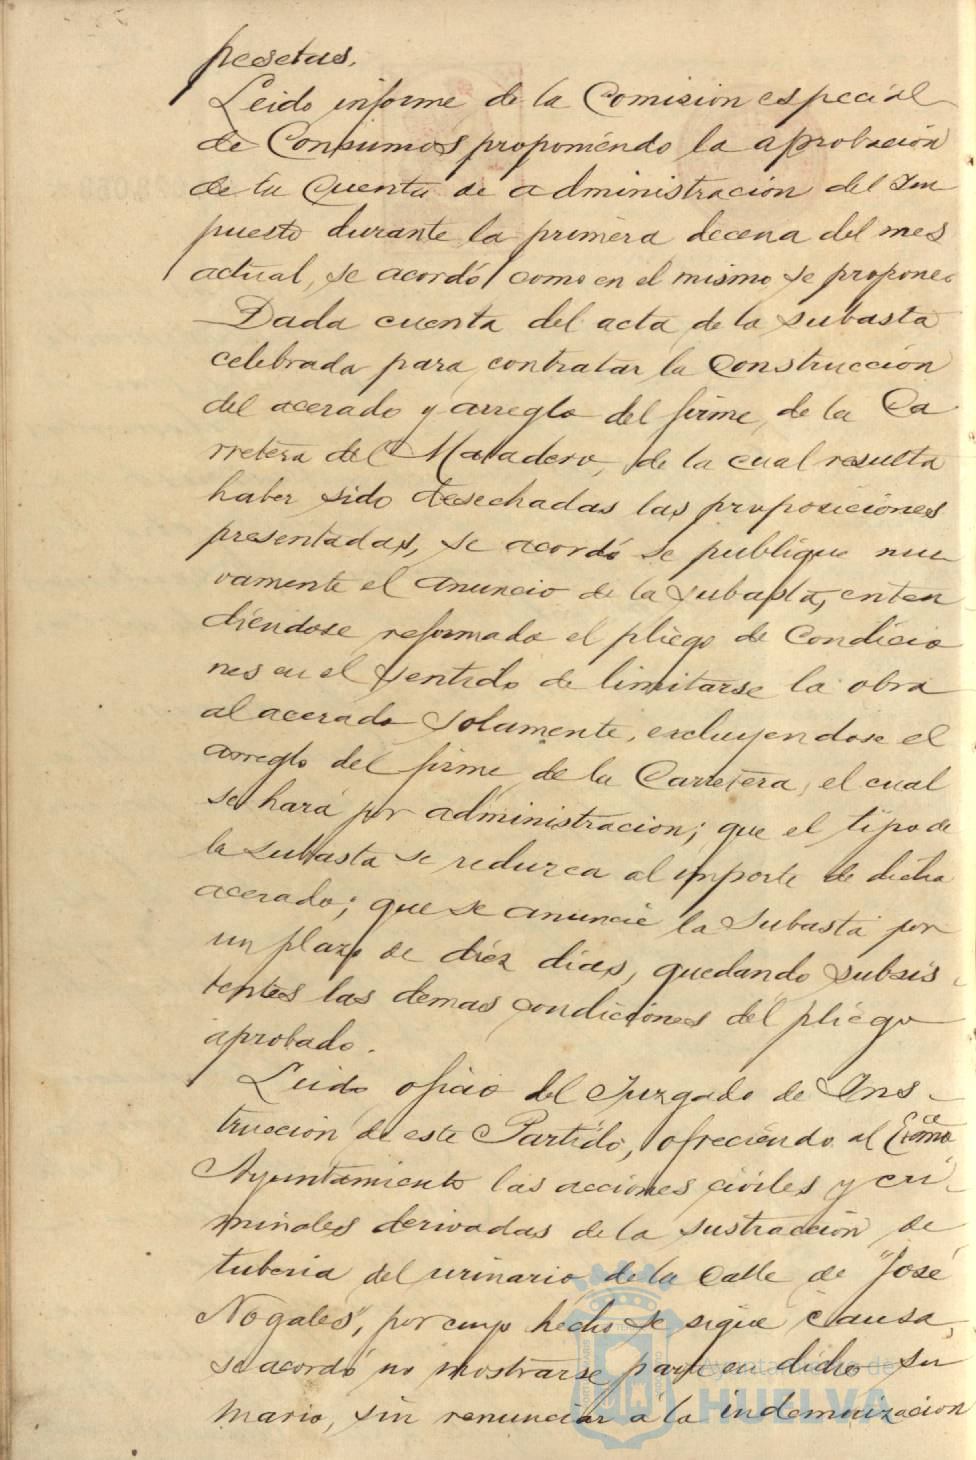 pesetas.
Leido informe de la Comision especial
de Consumos proponiendo la aprobación
de la Cuenta de administración del Im
puesto durante la primera decena del mes
actual, se acordó como en el mismo se propone.
Dada cuenta del acta de la subasta
celebrada para contratar la Construcción
del acerado y arreglo del firme, de la Ca
rretera del Matadero, de la cual resulta
haber sido desechadas las proposiciones
presentadas, se acordó se publique nue
vamente el anuncio de la subasta, enten
diéndose reformado el pliego de Condicio
nes en el sentido de limitarse la obra
al acerado solamente, excluyendose el
arreglo del firme de la Carretera, el cual
se hará por administracion; que el tipo de
la subasta se reduzca al importe de dicho
acerado; que se anuncie la Subasta por
un plazo de diez dias, quedando subsis-
tentes las demas condiciones del pliego
aprobado.
Leido oficio del Juzgado de Ins-
truccion de este Partido, ofreciendo al Excmo
Ayuntamiento las acciones civiles y cri-
minales derivadas de la sustracción de
tuberia del urinario, de la Calle de "José
Nogales", por cuyo hecho se sigue causa,
se acordó no mostrarse parte en dicho su
mario, sin renunciar a la indemnización
Ayuntamiento de
HUELVA